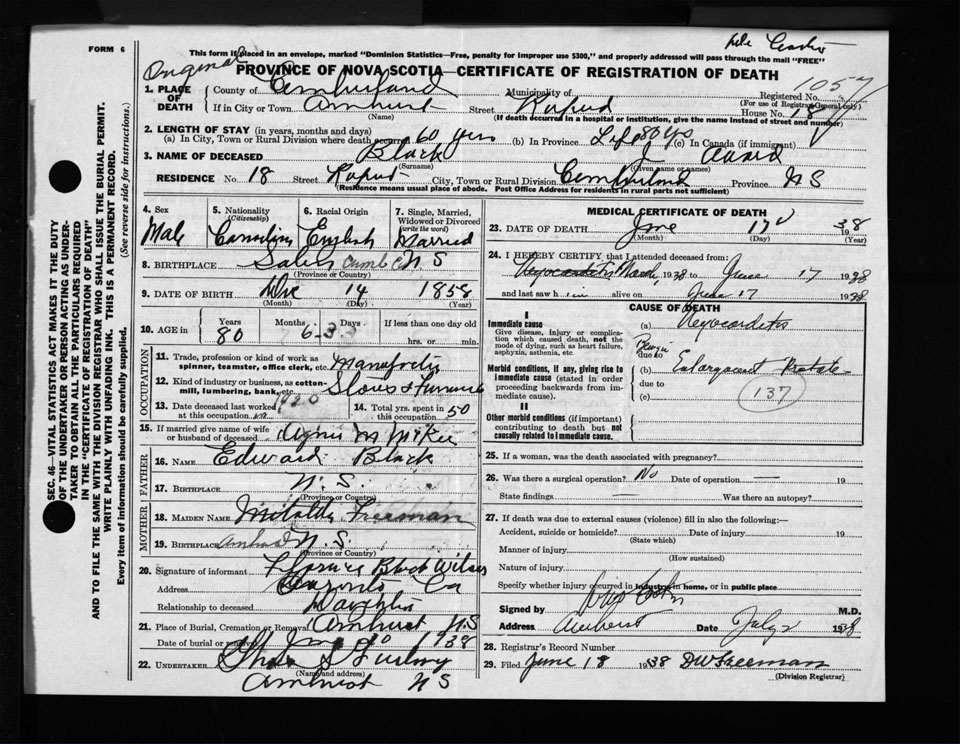 FORM 6
This form if placed in an envelope, marked "Dominion Statistics—Free, penalty for improper use $300," and properly addressed will pass through the mail "FREE"
Original
PROVINCE OF NOVA SCOTIA—CERTIFICATE OF REGISTRATION OF DEATH
1. PLACE OF DEATH
County of Cumberland Municipality of Registered No. 1057
(For use of Registrar General only)
If in City or Town Amherst Street Rupert House No. 18
(Name) (If death occurred in a hospital or institution, give the name instead of street and number)
2. LENGTH OF STAY (in years, months and days)
(a) In City, Town or Rural Division where death occurred 60 yrs (b) In Province Life 80 yrs (c) In Canada (if immigrant)
3. NAME OF DECEASED Black J
(Surname) (Given name or names)
RESIDENCE No. 18 Street Rupert City, Town or Rural Division Cumberland Province N S
(Residence means usual place of abode. Post Office Address for residents in rural parts not sufficient)
SEC. 46—VITAL STATISTICS ACT MAKES IT THE DUTY
OF THE UNDERTAKER OR PERSON ACTING AS UNDER-
TAKER TO OBTAIN ALL THE PARTICULARS REQUIRED
IN THE "CERTIFICATE OF REGISTRATION OF DEATH"
AND TO FILE THE SAME WITH THE DIVISION REGISTRAR WHO SHALL ISSUE THE BURIAL PERMIT.
WRITE PLAINLY WITH UNFADING INK. THIS IS A PERMANENT RECORD.
Every item of information should be carefully supplied. (See reverse side for instructions.)
4. Sex Male
5. Nationality (Citizenship) Canadian
6. Racial Origin English
7. Single, Married, Widowed or Divorced (write the word) Married
8. BIRTHPLACE Salem Cumb Co N S
(Province or Country)
9. DATE OF BIRTH Dec 14 1858
(Month) (Day) (Year)
10. AGE in Years Months Days If less than one day old
80 6 3 hrs. or min.
OCCUPATION
11. Trade, profession or kind of work as
spinner, teamster, office clerk, etc.
12. Kind of industry or business, as cotton-
mill, lumbering, bank, etc. Stoves &
13. Date deceased last worked
at this occupation 1920
14. Total yrs. spent in
this occupation 50
15. If married give name of wife
or husband of deceased Agnes M McKee
FATHER
16. NAME Edward Black
17. BIRTHPLACE N. S.
(Province or Country)
MOTHER
18. MAIDEN NAME Matilda Freeman
19. BIRTHPLACE Amherst N. S.
(Province or Country)
20. Signature of informant Florence Black Wilson
Address Toronto Ca
Relationship to deceased Daughter
21. Place of Burial, Cremation or Removal Amherst N.S
Date of burial or removal June 20 1938
22. UNDERTAKER
(Name and address)
Amherst N S
MEDICAL CERTIFICATE OF DEATH
23. DATE OF DEATH June 17 1938
(Month) (Day) (Year)
24. I HEREBY CERTIFY, that I attended deceased from:
March, 1938 to June 17 1938
and last saw him alive on June 17 1938
CAUSE OF DEATH
I
Immediate cause
Give disease, injury or complica-
tion which caused death, not the
mode of dying, such as heart failure,
asphyxia, asthenia, etc.
(a) Myocarditis
due to
Morbid conditions, if any, giving rise to
immediate cause (stated in order
proceeding backwards from im-
mediate cause).
(b) Enlargement Prostate
due to
(c) 137
II
Other morbid conditions (if important)
contributing to death but not
causally related to immediate cause.
25. If a woman, was the death associated with pregnancy?
26. Was there a surgical operation? No Date of operation — 19
State findings — Was there an autopsy?
27. If death was due to external causes (violence) fill in also the following:—
Accident, suicide or homicide? Date of injury 19
(State which)
Manner of injury
(How sustained)
Nature of injury
Specify whether injury occurred in industry, in home, or in public place
Signed by M.D.
Address Amherst Date July 2 1938
28. Registrar's Record Number
29. Filed June 18 1938 DW Freeman
(Division Registrar)